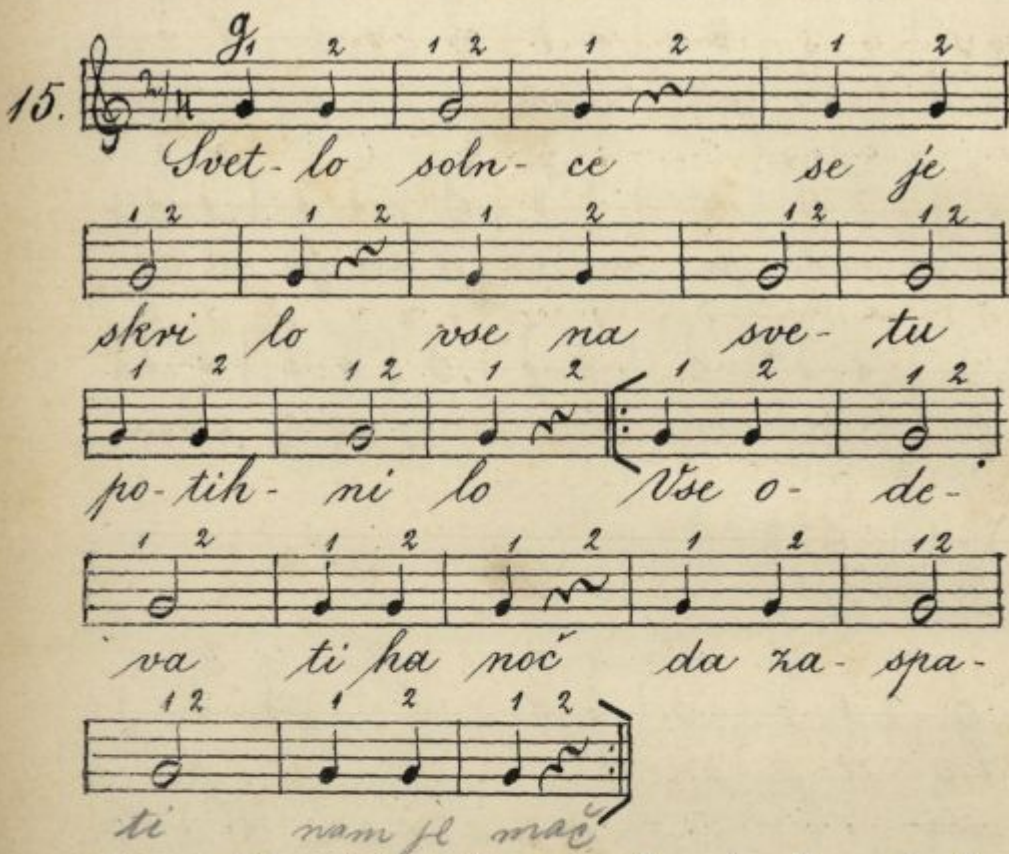 g
1 2 1 2 1 2 1 2
15. 2/4
Svet- lo soln- ce se je
1 2 1 2 1 2 1 2 1 2
skri lo vse na sve- tu
1 2 1 2 1 2 1 2 1 2
po- tih- ni lo Vse o- de-
1 2 1 2 1 2 1 2 1 2
va ti ha noč da za- spa-
1 2 1 2 1 2
ti nam je moč